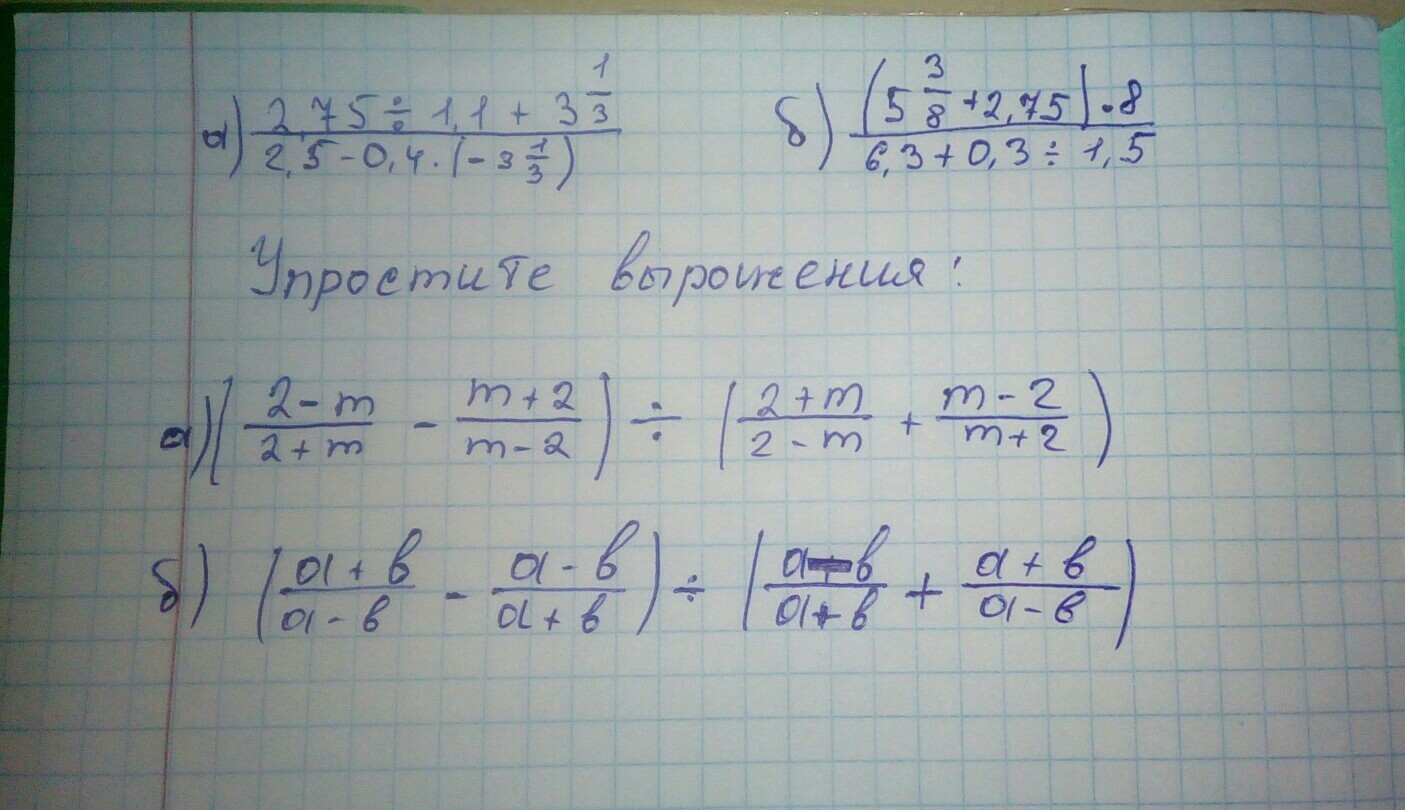 а) (2,75 ÷ 1,1 + 3 1/3) / (2,5 - 0,4 · (-3 1/3)) б) ((5 3/8 + 2,75) · 8) / (6,3 + 0,3 ÷ 1,5)
Упростите выражения:
а) ((2 - m)/(2 + m) - (m + 2)/(m - 2)) ÷ ((2 + m)/(2 - m) + (m - 2)/(m + 2))
б) ((а + в)/(а - в) - (а - в)/(а + в)) ÷ ((а - в)/(а + в) + (а + в)/(а - в))